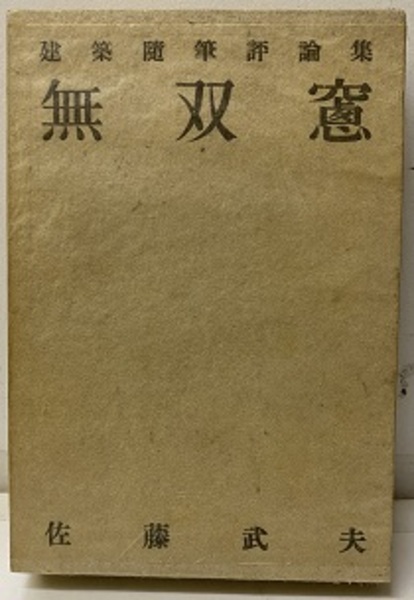 建築随筆評論集
無双窻
佐藤武夫